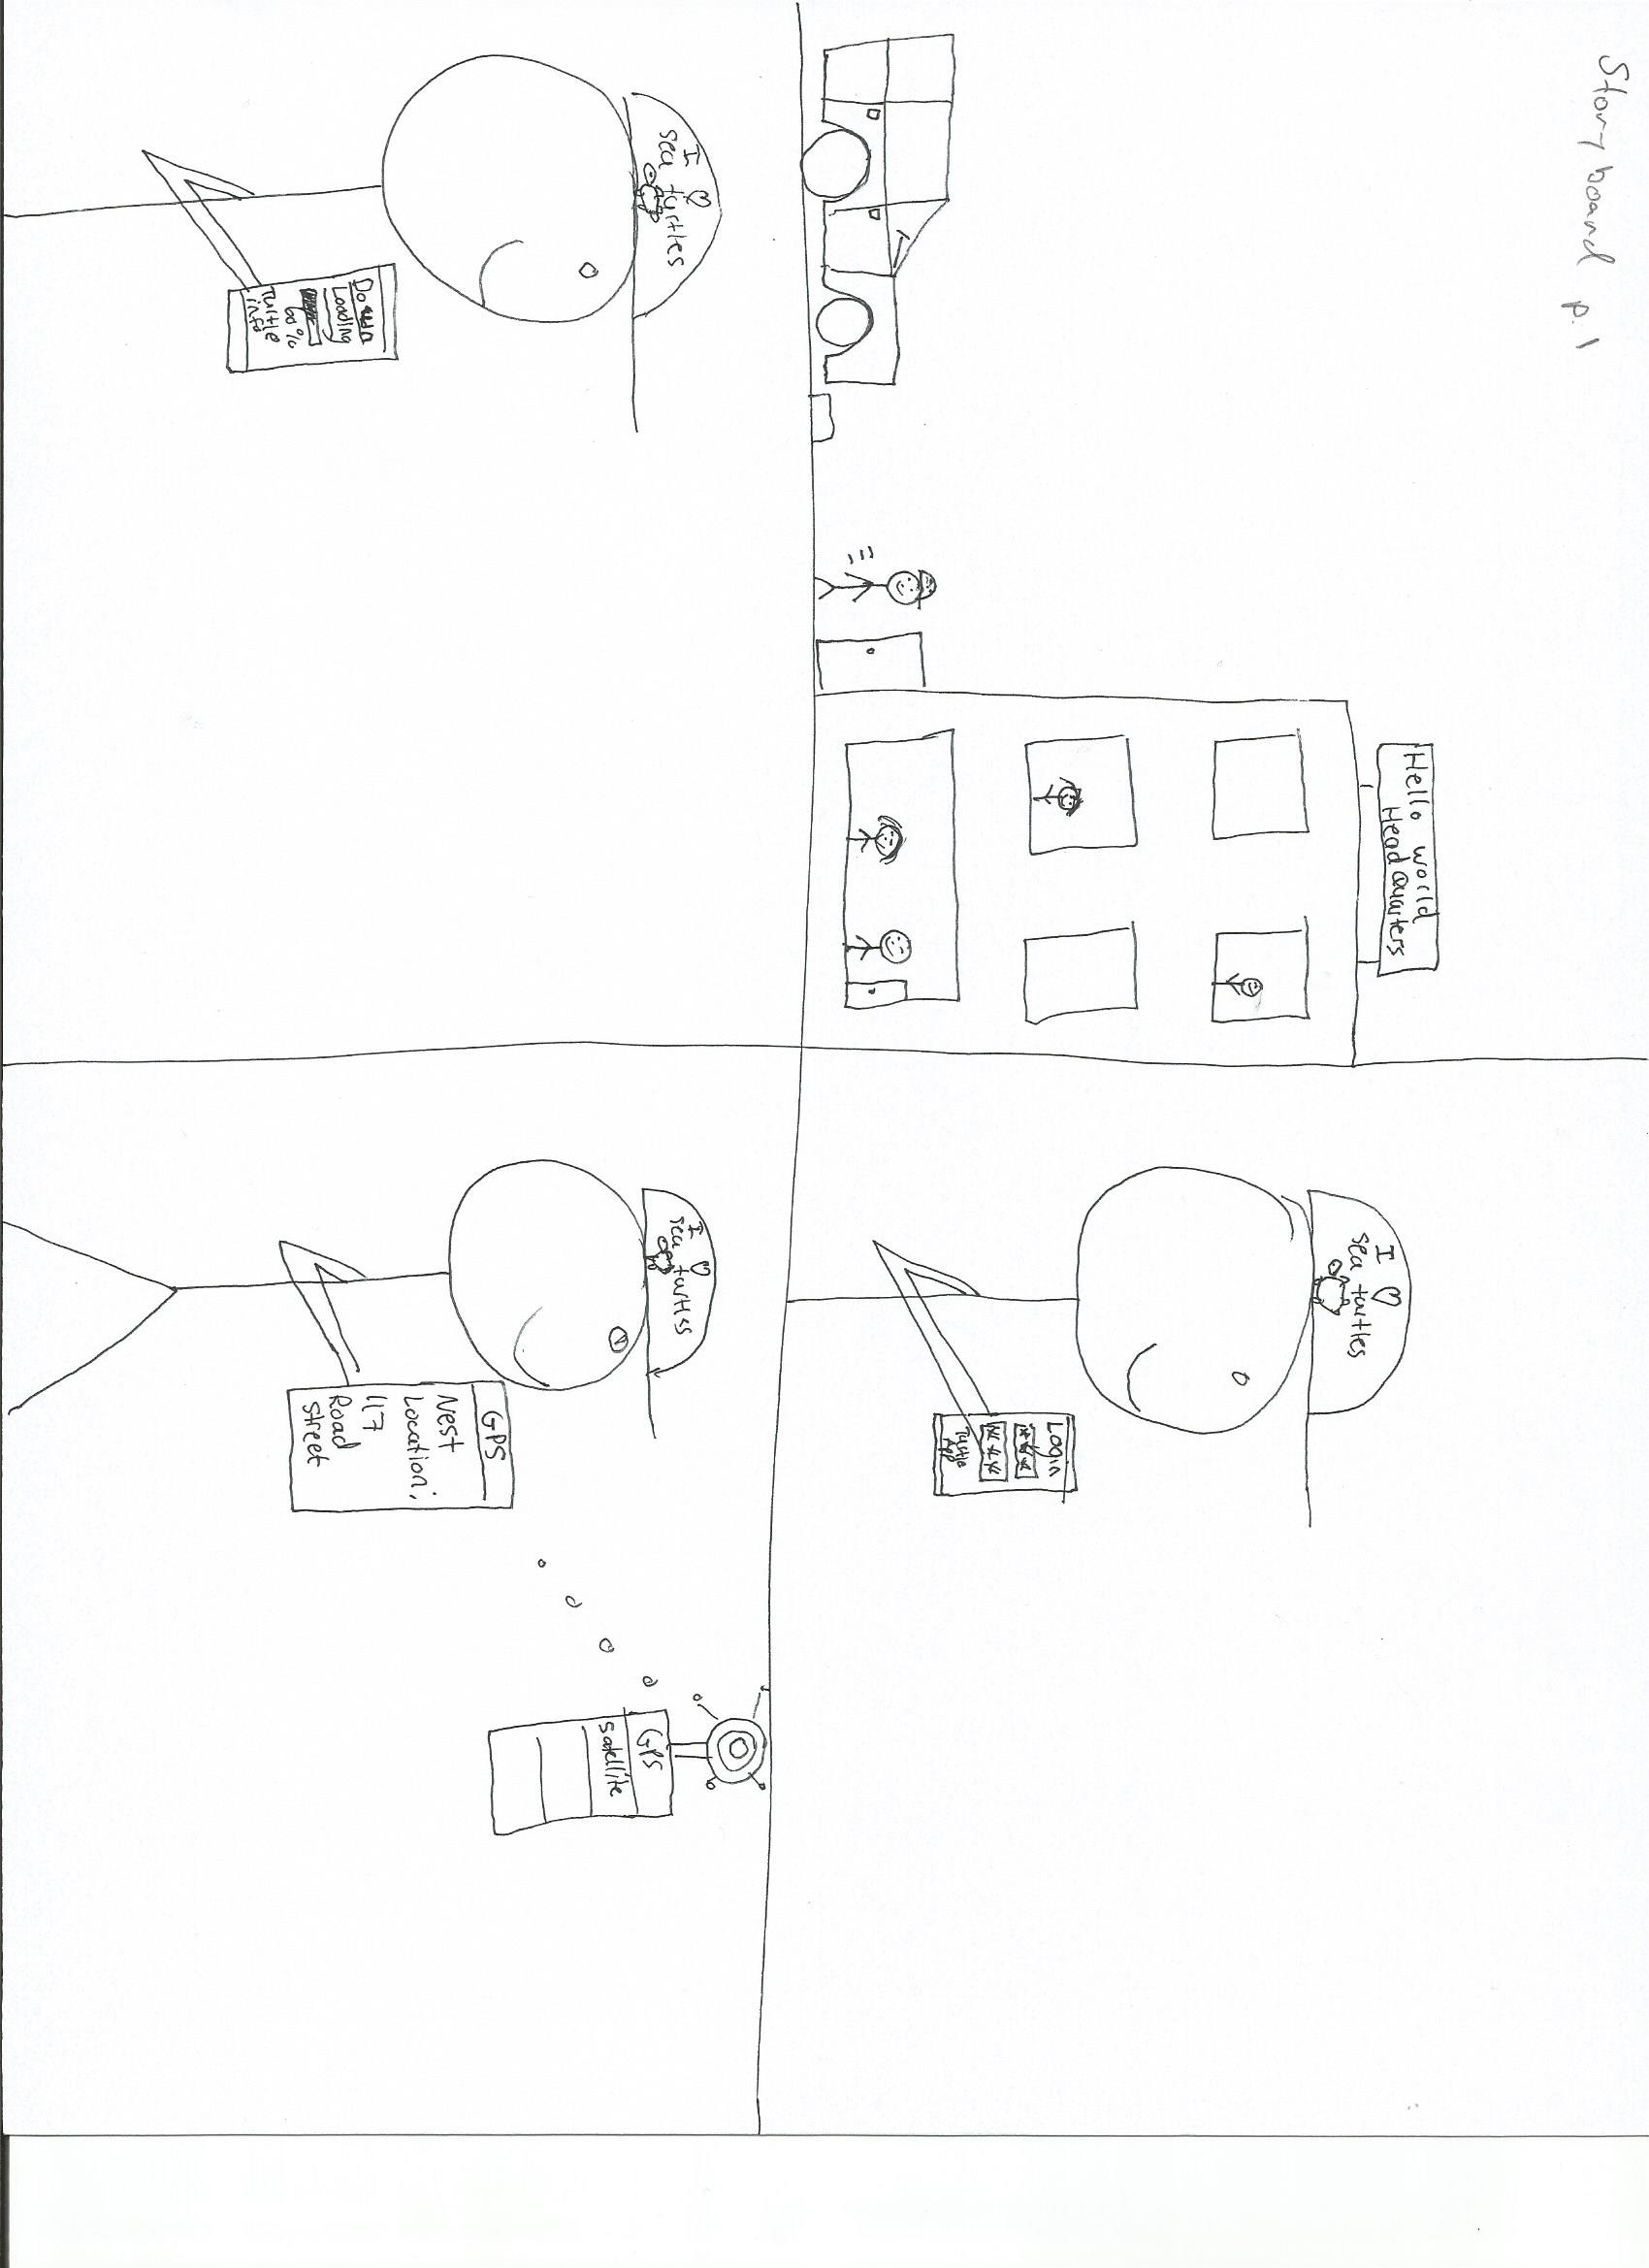 Story board p. 1
Hello world
Head Quarters
I ♡
sea turtles
Login
****
****
Turtle
App
I ♡
sea turtles
Down
Loading
60%
Turtle
info
I ♡
sea turtles
GPS
Nest
Location:
117
Road
Street
GPS
satellite